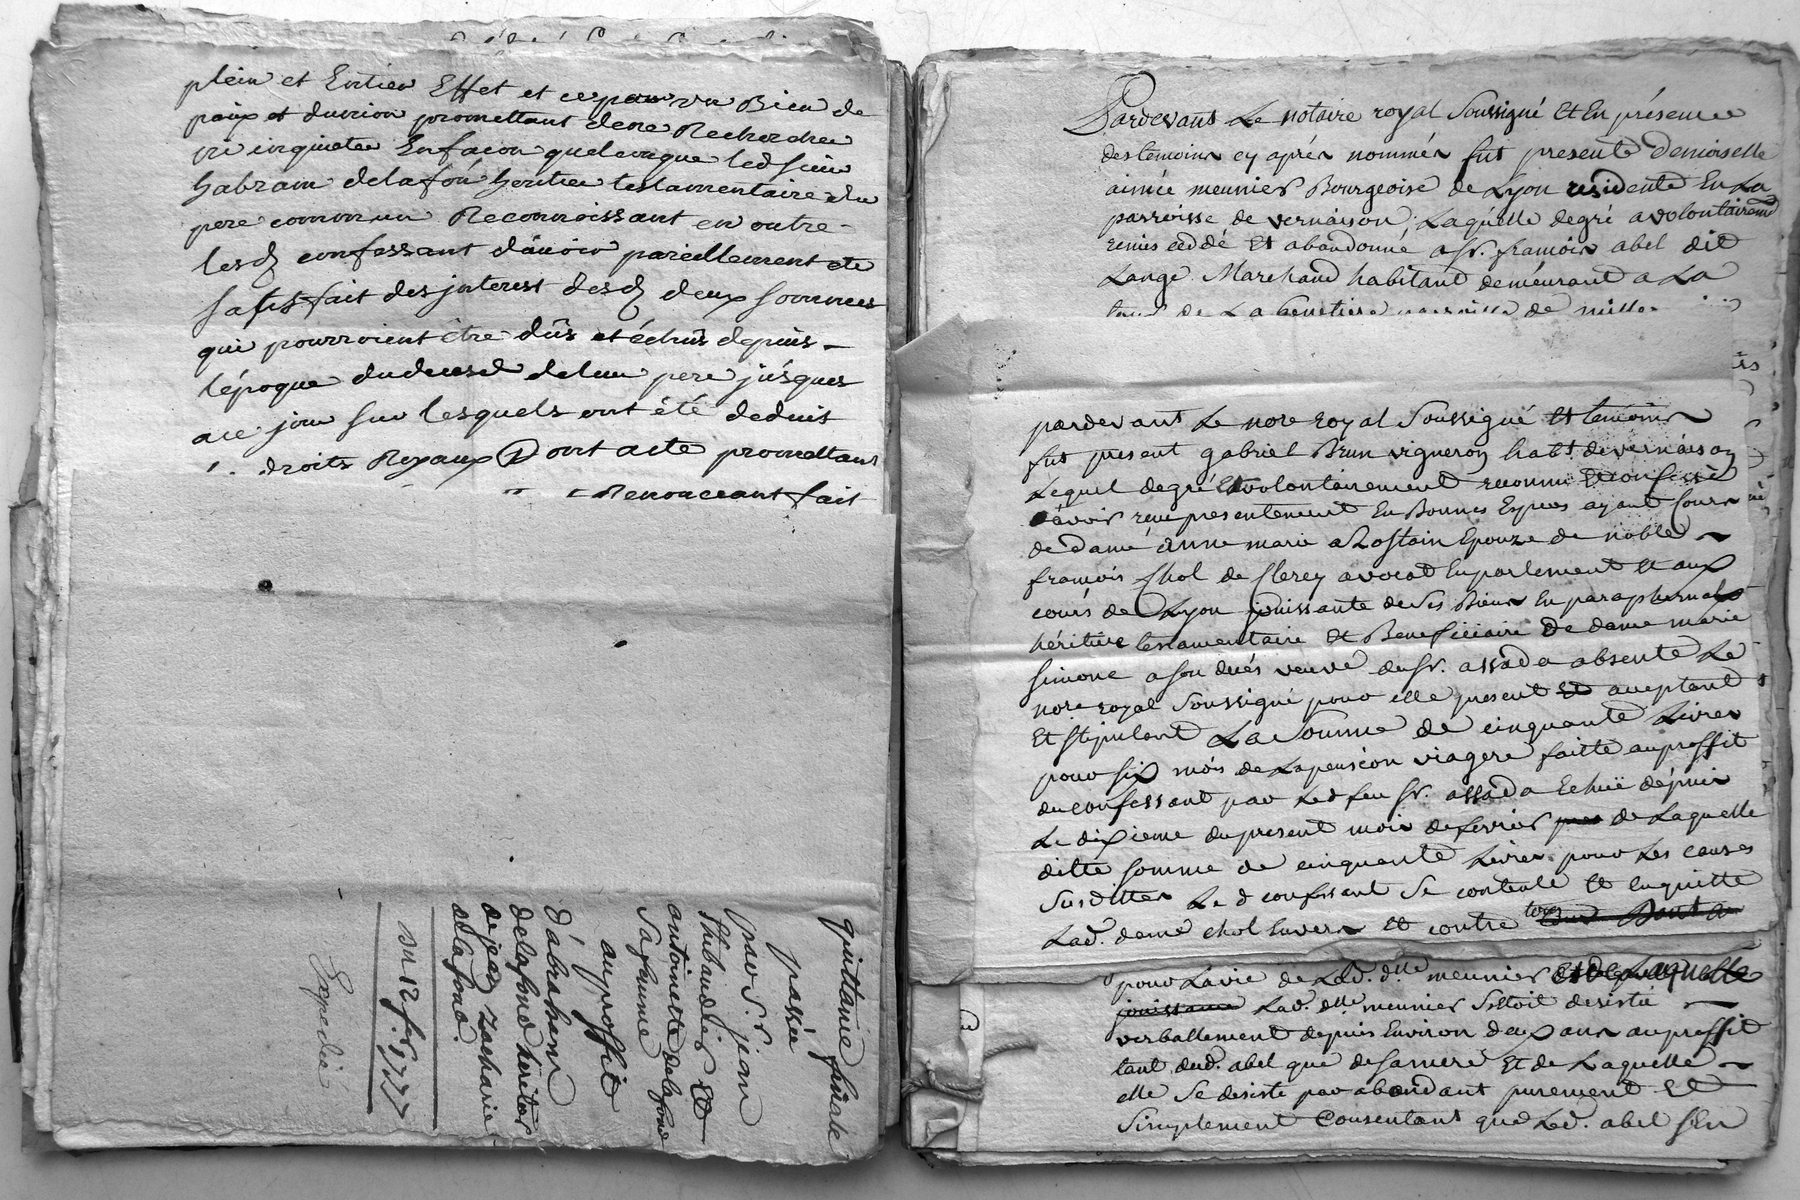 plein et Entier Effet et ce pour un Bien de
paix et dunion promettant dene Rechercher
ni inquieter Enfacon quelconque led sieur
habram delafon heritier testamentaire du
pere commun Reconnoissant en outre
lesd confessant d'avoir pareillement ete
satisfait des jnterest desd deux sommes
qui pourroient être dûs et échûs depuis
lépoque dudeced deleur pere jusques
ace jour sur lesquels ont été deduis
droits Royaux Dont acte promettant
Renonceant fait
quittance finale
passée
par Sr. jean
thibaudier et
antoinette dela fond
sa femme
au proffit
d'abraham
delafond heritier
de jean zacharie
dela fond.
du 12 fr. 1777
Expedié
Pardevant Le notaire royal Soussigné Et En présence
des temoins cy aprés nommés fut presente Demoiselle
aimée meunier Bourgeoise de Lyon residente En La
parroisse de vernaison, Laquelle degré a volontairemt
remis ceddé Et abandonné a Sr. francois abel dit
Lange Marchand habitant demeurant a La
de La parroisse de mille
pardevant Le nore royal Soussigné Et temoins
fut present gabriel Brun vigneron habt. de vernaison
Lequel degré Et volontairement reconnu Et confessé
d'avoir recu presentement En Bonnes Espèces ayant Cours
de dame anne marie a Rostain Epouze de noble
francois Chol de Clercy avocat En parlement Et aux
cours de Lyon jouissante de Ses Biens En paraphernal
héritiere testamentaire Et Beneficiaire De dame marie
simone veuve du Sr. assada absente Le
nore royal Soussigné pour elle present Et acceptant
Et stipulant La Somme de cinquante Livres
pour six mois de La pension viagere faitte au proffit
du confessant par Led feu Sr. assada Echue depuis
Le dixieme du present mois de fevrier de Laquelle
ditte somme de cinquante Livres pour Les causes
Susdittes Le d confessant Se contente Et En quitte
Lad. dame Chol Envers Et contre tous
pour La vie de Lad. dlle meunier Et de Laquelle
jouissance Lad. dlle meunier S'etoit desistée
verballement depuis Environ deux ans au proffit
tant dud. abel que de sa mere Et de Laquelle
elle Se desiste par abondant purement Et
Simplement Consentant que Led. abel S'en